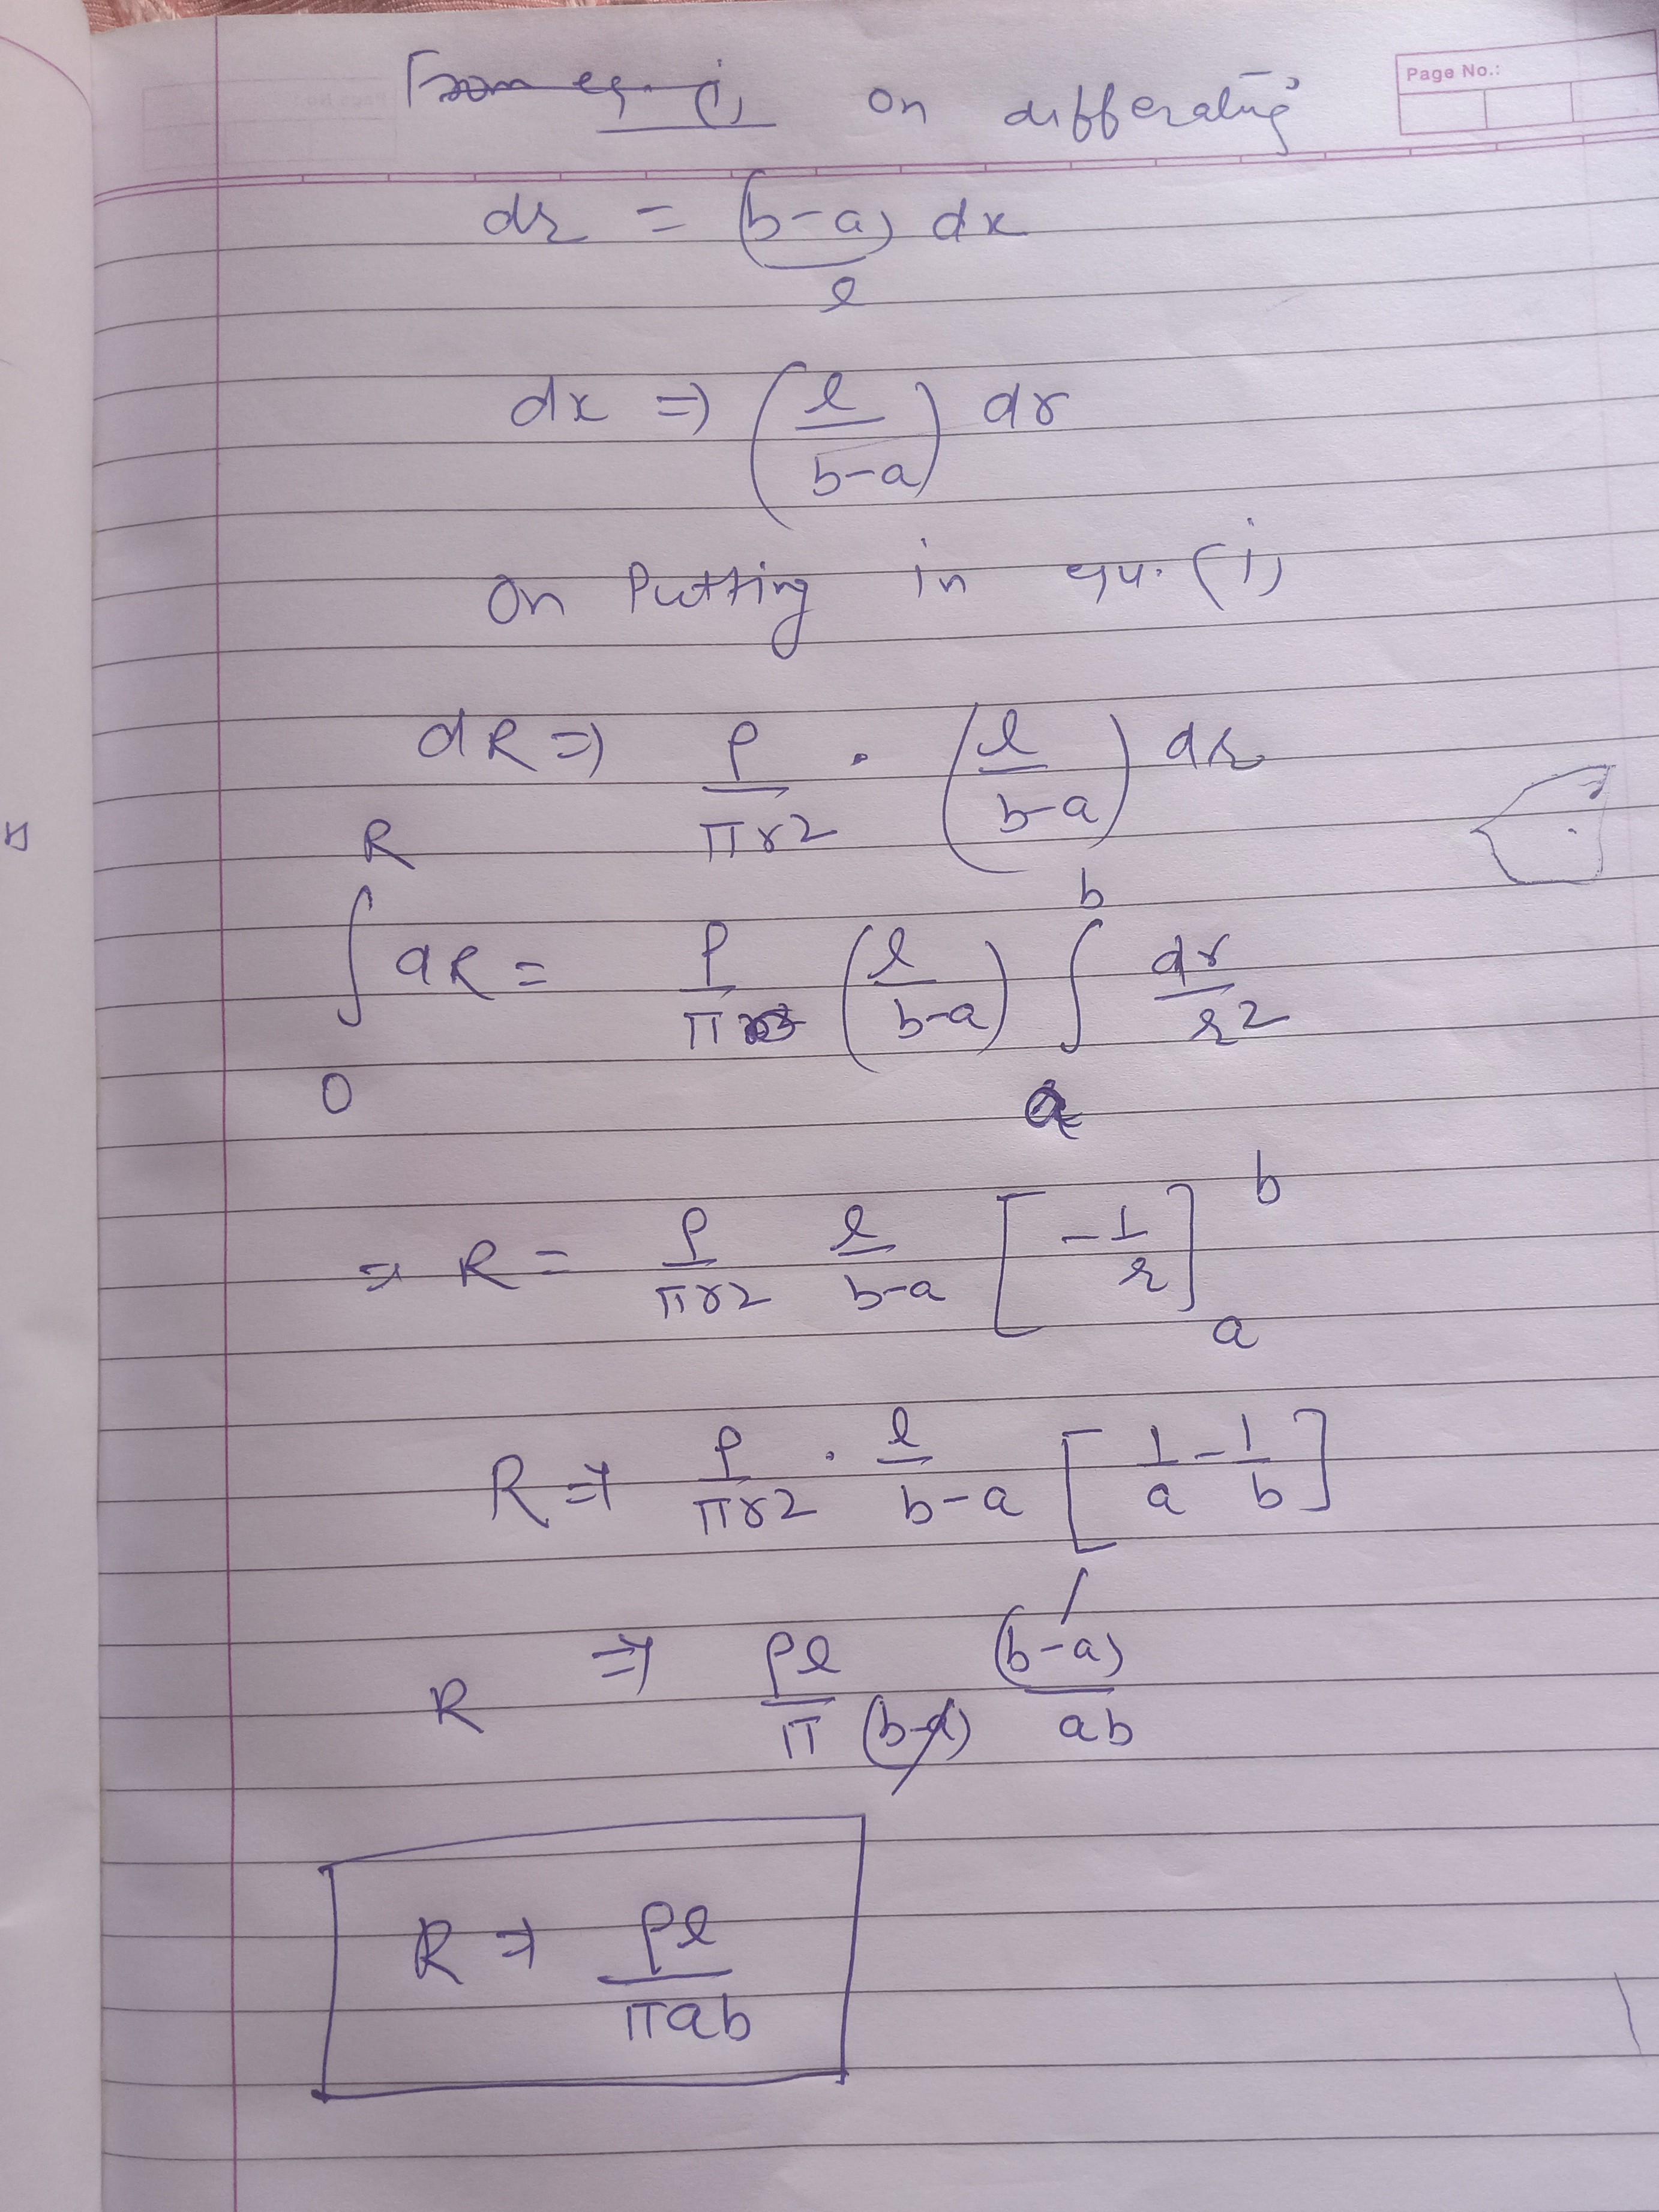 Page No.:
From eq. (i) on differating
dr = (b-a)/l dx
dx => (l/(b-a)) dr
On Putting in qu. (i)
dR => ρ/πr2 . (l/(b-a)) dr
∫₀ᴿ dR = ρ/π (l/(b-a)) ∫ₐᵇ dr/r2
=> R = ρ/πr2 l/(b-a) [-1/r]ₐᵇ
R => ρ/πr2 . l/(b-a) [1/a - 1/b]
R => ρl/π(b-a) (b-a)/ab
R => ρl/πab